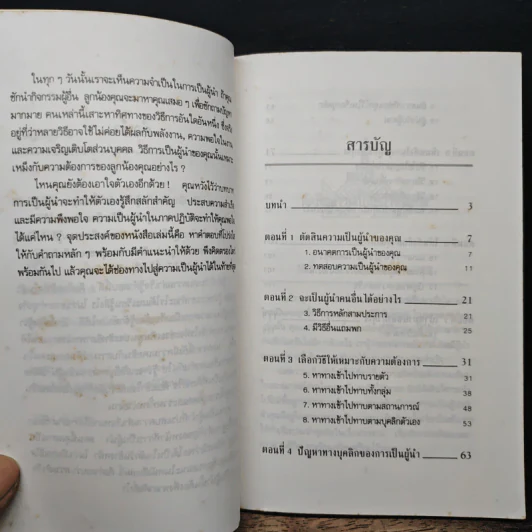 ในทุก ๆ วันนั้นเราจะเห็นความจำเป็นในการเป็นผู้นำ ถ้าคุณ
ชักนำกิจกรรมผู้อื่น ลูกน้องคุณจะมาหาคุณเสมอ ๆ เพื่อซักถามปัญหา
มากมาย คนเหล่านี้เสาะหาทิศทางของวิธีการอันใดอันหนึ่ง ซึ่งขึ้น
อยู่ที่ว่าหลายวิธีอาจใช้ไม่ค่อยได้ผลกับพลังงาน, ความพอใจในงาน
และความเจริญเติบโตส่วนบุคคล วิธีการเป็นผู้นำของคุณนั้นเหมาะ
เหม็งกับความต้องการของลูกน้องคุณอย่างไร ?
ไหนคุณยังต้องเอาใจตัวเองอีกด้วย ! คุณหวังไว้ว่าบทบาท
การเป็นผู้นำจะทำให้ตัวเองรู้สึกสลักสำคัญ ประสบความสำเร็จ
และมีความพึงพอใจ ความเป็นผู้นำในภาคปฏิบัติจะทำให้คุณพอใจ
ได้แค่ไหน ? จุดประสงค์ของหนังสือเล่มนี้คือ หาคำตอบที่โปร่งใส
ให้กับคำถามหลัก ๆ พร้อมกับมีคำแนะนำให้ด้วย พึงคิดตรองไป
พร้อมกันไป แล้วคุณจะได้ช่องทางไปสู่ความเป็นผู้นำได้ในท้ายที่สุด
สารบัญ
บทนำ 3
ตอนที่ 1 ตัดสินความเป็นผู้นำของคุณ 7
1. อนาคตการเป็นผู้นำของคุณ 7
2. ทดสอบความเป็นผู้นำของคุณ 11
ตอนที่ 2 จะเป็นผู้นำคนอื่นได้อย่างไร 21
3. วิธีการหลักสามประการ 21
4. มีวิธีอื่นแถมพก 25
ตอนที่ 3 เลือกวิธีให้เหมาะกับความต้องการ 31
5. หาทางเข้าไปทาบรายตัว 31
6. หาทางเข้าไปทาบทั้งกลุ่ม 38
7. หาทางเข้าไปทาบตามสถานการณ์ 48
8. หาทางเข้าไปทาบตามบุคลิกตัวเอง 53
ตอนที่ 4 ปัญหาทางบุคลิกของการเป็นผู้นำ 63